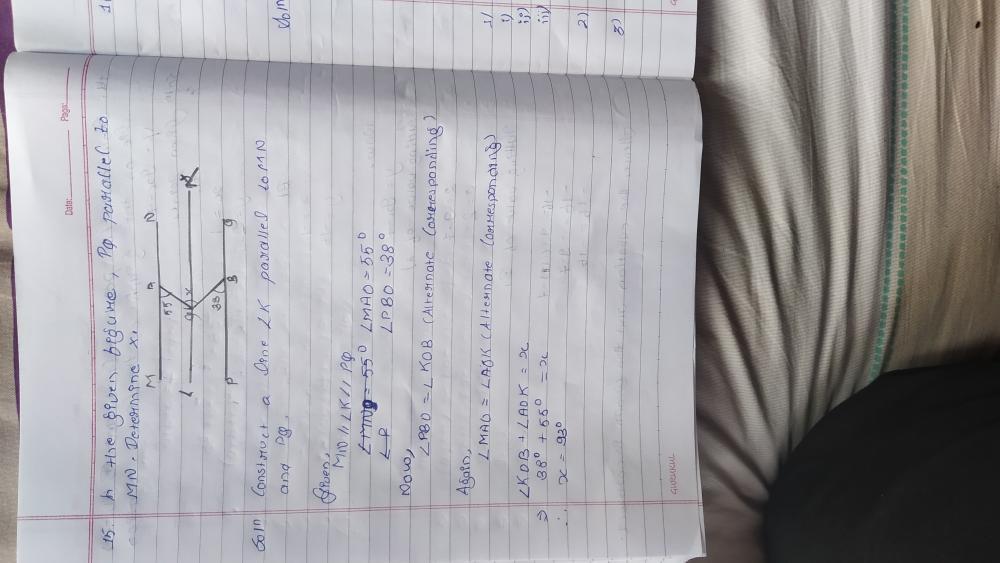 Date: Page:
15. In the given begure, PQ parallel to
MN. Determine x.
M A N
55
L O x K
38
P B Q
Soln Construct a line LK parallel to MN
and PQ.
Given,
MN // LK // PQ
∠MAO = 55°
∠P ∠PBO = 38°
Now,
∠PBO = ∠KOB (Alternate corresponding)
Again,
∠MAO = ∠AOK (Alternate corresponding)
⇒ ∠KOB + ∠AOK = x
38° + 55° = x
∴ x = 93°
GURUKUL
Soln
1)
i)
ii)
iii)
2)
3)